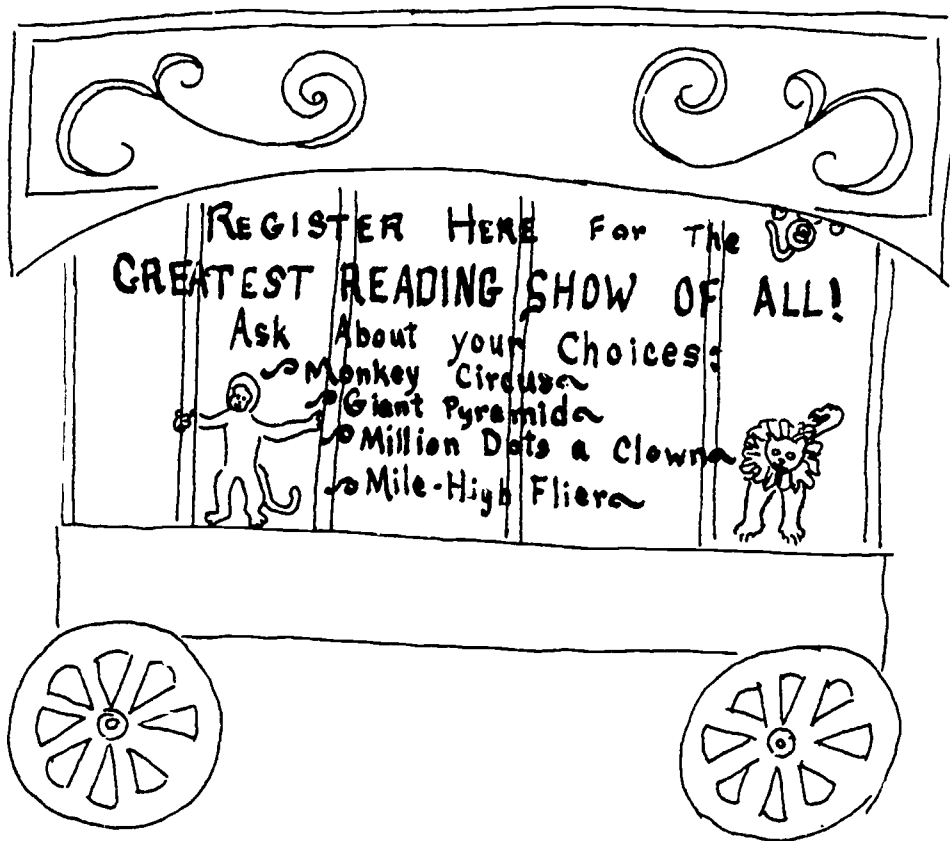 REGISTER HERE For The
GREATEST READING SHOW OF ALL!
Ask About your Choices:
Monkey Circus
Giant Pyramid
Million Dots a Clown
Mile-High Flier